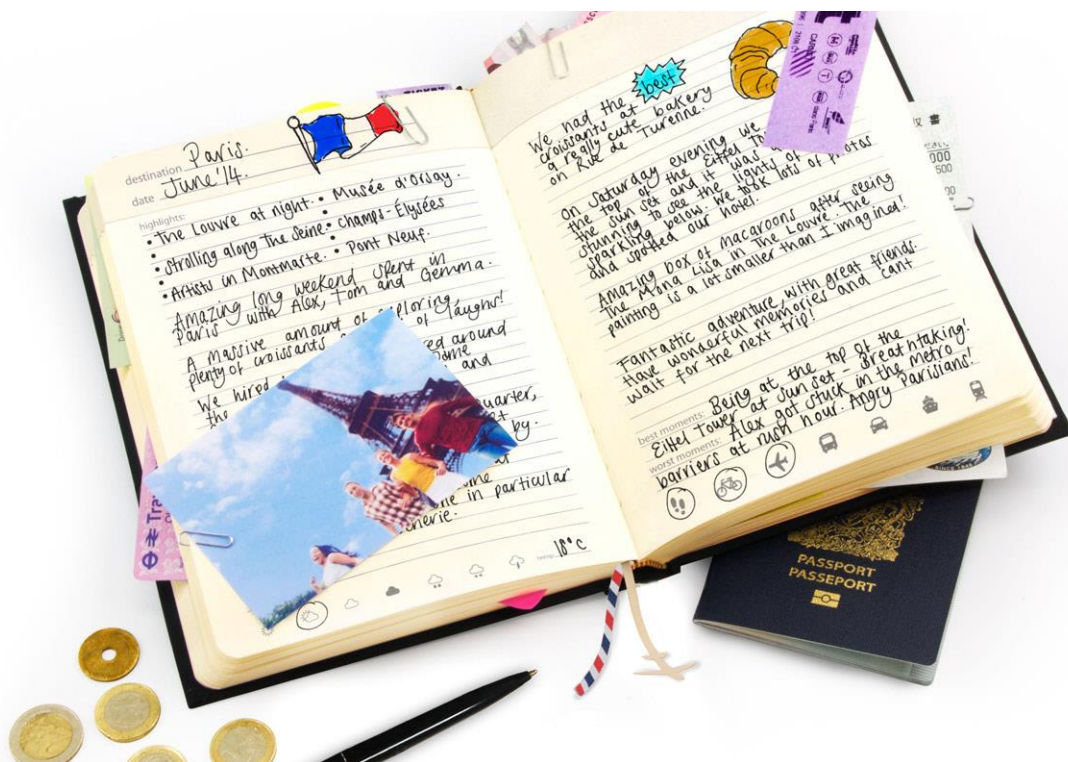 destination Paris.
date June '14.
highlights:
• The Louvre at night. • Musée d'Orsay.
• Strolling along the Seine • Champs-Élysées
• Artists in Montmarte. • Pont Neuf.
Amazing long weekend spent in
Paris with Alex, Tom and Gemma.
A massive amount of exploring,
plenty of croissants of laughs!
We hired around
the and
quarter,
by.
in particular
temp: 18°C
We had the best
croissants at
a really cute bakery
on Rue de Turenne.
On Saturday evening we
the top of the Eiffel
the sun set and it was
stunning to see the lights of
sparkling below. We took lots of photos
and spotted our hotel.
Amazing box of macaroons after seeing
The Mona Lisa in The Louvre. The
painting is a lot smaller than I imagined!
Fantastic adventure with great friends.
Have wonderful memories and cant
wait for the next trip!
best moments: Being at the top of the
Eiffel Tower at sunset - Breathtaking!
worst moments: Alex got stuck in the metro
barriers at rush hour. Angry Parisians!
PASSPORT
PASSEPORT